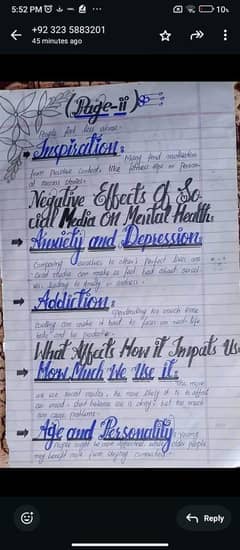 5:52 PM
10%
+92 323 5883201
45 minutes ago
(Page-ii)
People feel less alone.
Inspiration:
Many find motivation
from positive content, like fitness tips or Personal
success stories.
Negative Effects Of So
cial Media On Mental Health:
Anxiety and Depression:
Comparing ourselves to other's perfect lives on
social media can make us feel bad about oursel
ves, leading to anxiety or sadness.
Addiction:
Spending too much time
can make it hard to focus on real-life
and be productive.
What Affects How it Impats Us
How Much We Use it:
The more
we use social media, the more likely it is to affect
our mood. but too much
can cause problems.
Age and Personality:
young
people might be more affected, while older people
may benefit more from staying connected.
Reply